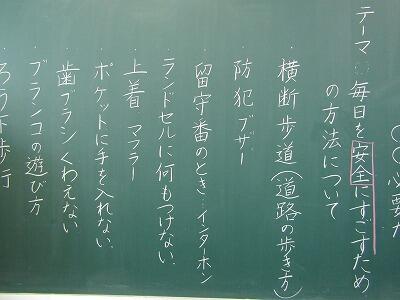 ○○必要な
テーマ 毎日を安全にすごすため
の方法について
・横断歩道(道路の歩き方)
防犯ブザー
・留守番のとき…インタホン
ランドセルに何もつけない。
・上着 マフラー
・ポケットに手を入れない。
歯ブラシくわえない
・ブランコの遊び方
・ろう下歩行